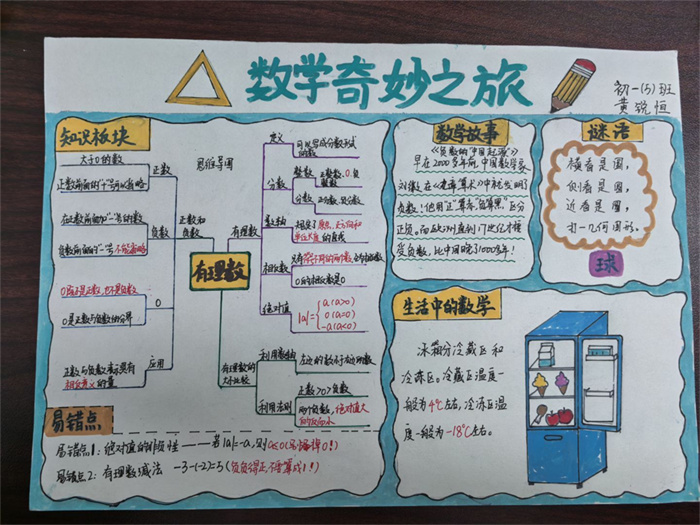 数学奇妙之旅
初一(5)班
黄锐恒
知识板块
思维导图
有理数
正数和
负数
正数
大于0的数
正数前面的"+"号可以省略
在正数前面加"-"号的数
负数前面的"-"号不能省略
0
0既不是正数,也不是负数
0是正数与负数的分界
应用
正数与负数表示具有
相反意义的量
有理数
定义
可以写成分数形式
的数
分数
整数
正整数、0、负
整数
分数
正分数、负分数
数轴
规定了原点、正方向和
单位长度的直线
相反数
只有符号不同的两个数,
0的相反数是0
绝对值
|a|=
a(a>0)
0(a=0)
-a(a<0)
有理数的
大小比较
利用数轴
左边的数小于右边的数
利用法则
正数>0>负数
两个负数,绝对值大
的反而小
易错点
易错点1:绝对值的非负性——若|a|=-a,则a≤0(易漏掉0!)
易错点2:有理数减法 -3-(-2)=5(负负得正,算成1!)
数学故事
《负数的"中国起源"》
早在2000多年前,中国数学家
刘徽在《九章算术》中就发明了
负数!他用正"算赤,负算黑"区分
正负。而欧洲直到17世纪才接
受负数,比中国晚了1000多年!
谜语
横看是圆,
侧看是圆,
远看是圆,
打一几何图形。
球
生活中的数学
冰箱分冷藏区和
冷冻区。冷藏区温度一
般为4℃左右,冷冻区温
度一般为-18℃左右。